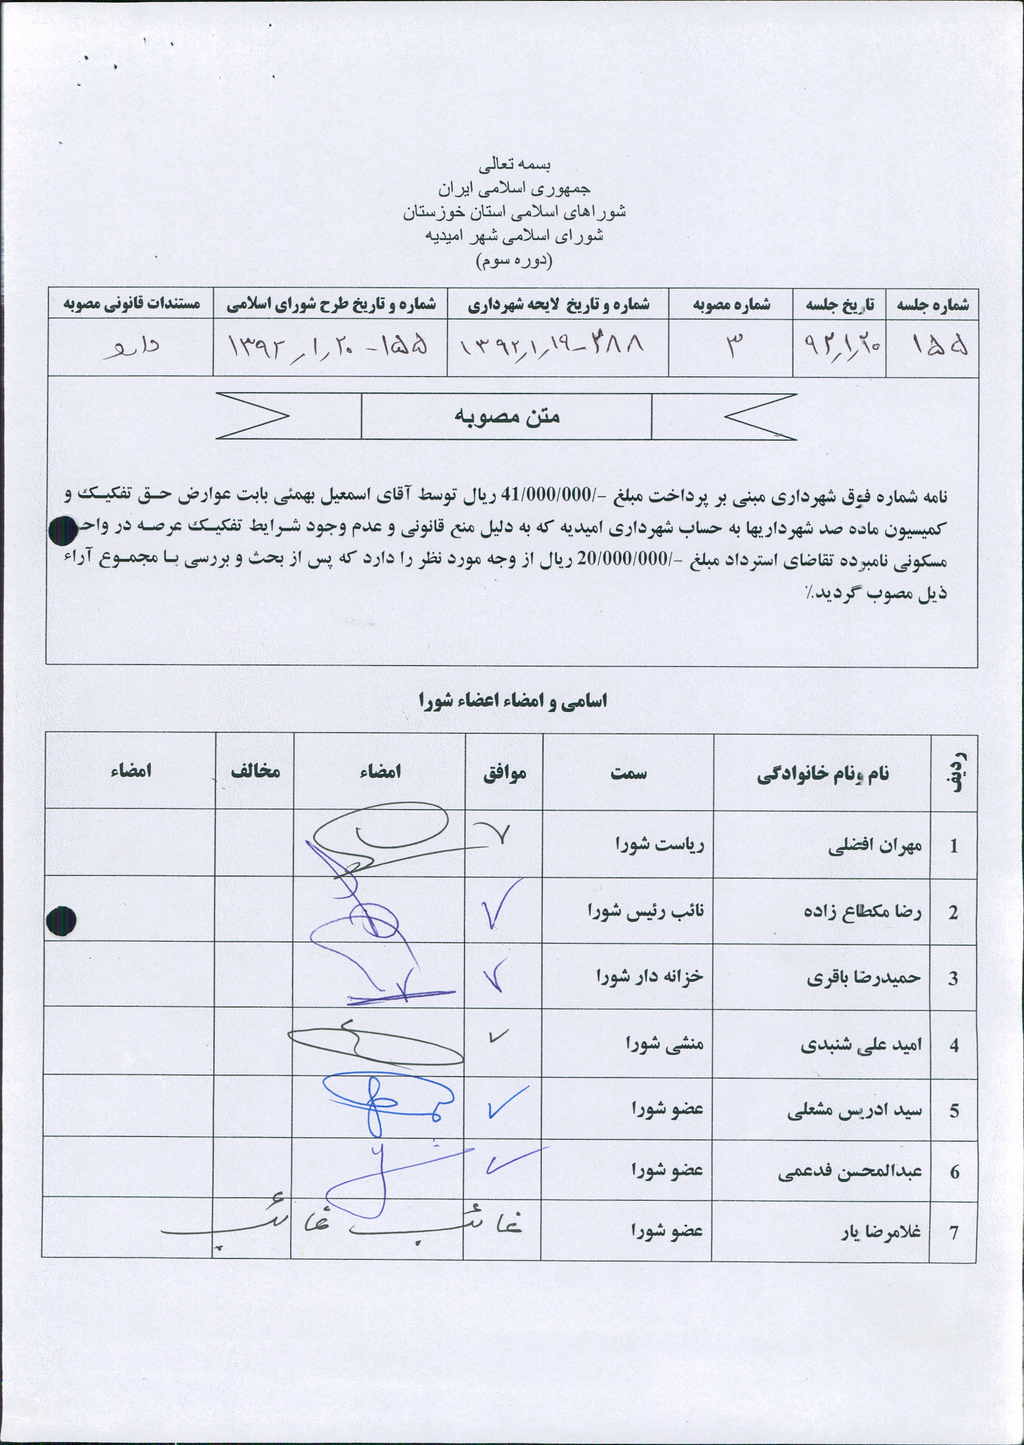 بسمه تعالی
جمهوری اسلامی ایران
شوراهای اسلامی استان خوزستان
شورای اسلامی شهر امیدیه
(دوره سوم)
شماره جلسه تاریخ جلسه شماره مصوبه شماره و تاریخ لایحه شهرداری شماره و تاریخ طرح شورای اسلامی مستندات قانونی مصوبه
۱۵۵ ۹۲/۱/۲۰ ۳ ۳۸۸-۱۳۹۲/۱/۱۹ ۱۵۵-۱۳۹۲/۱/۲۰ دارد
متن مصوبه
نامه شماره فوق شهرداری مبنی بر پرداخت مبلغ -/41/000/000 ریال توسط آقای اسمعیل بهمئی بابت عوارض حق تفکیک و
کمیسیون ماده صد شهرداریها به حساب شهرداری امیدیه که به دلیل منع قانونی و عدم وجود شرایط تفکیک عرصه در واحد
مسکونی نامبرده تقاضای استرداد مبلغ -/20/000/000 ریال از وجه مورد نظر را دارد که پس از بحث و بررسی با مجموع آراء
ذیل مصوب گردید.٪
اسامی و امضاء اعضاء شورا
ردیف نام ونام خانوادگی سمت موافق امضاء مخالف امضاء
1 مهران افضلی ریاست شورا
2 رضا مکطاع زاده نائب رئیس شورا
3 حمیدرضا باقری خزانه دار شورا
4 امید علی شنبدی منشی شورا
5 سید ادریس مشعلی عضو شورا
6 عبدالمحسن فدعمی عضو شورا
7 غلامرضا یار عضو شورا غائب غائب